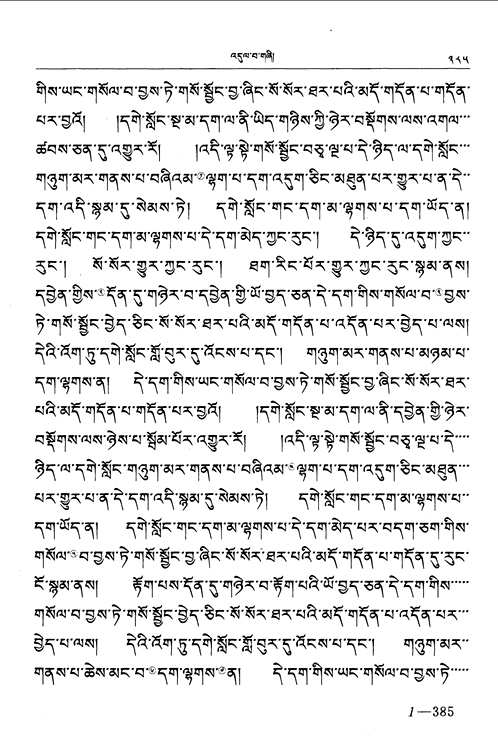 འདུལ་བ་གཞི། ༣༨༥
གིས་ཡང་གསོལ་བ་བྱས་ཏེ་གསོ་སྦྱོང་བྱ་ཞིང་སོ་སོར་ཐར་པའི་མདོ་གདོན་པ་གདོན་
པར་བྱའོ། །དགེ་སློང་སྔ་མ་དག་ལ་ནི་ཡིད་གཉིས་ཀྱི་ཉེར་བསྡོགས་ལས་འགལ་
ཚབས་ཅན་དུ་འགྱུར་རོ། །འདི་ལྟ་སྟེ་གསོ་སྦྱོང་བཅྭ་ལྔ་པ་དེ་ཉིད་ལ་དགེ་སློང་
གཉུག་མར་གནས་པ་བཞིའམ་ལྷག་པ་དག་འདུག་ཅིང་མཐུན་པར་གྱུར་པ་ན་དེ་
དག་འདི་སྙམ་དུ་སེམས་ཏེ། དགེ་སློང་གང་དག་མ་ལྷགས་པ་དག་ཡོད་ན།
དགེ་སློང་གང་དག་མ་ལྷགས་པ་དེ་དག་མེད་ཀྱང་རུང་། དེ་ཉིད་དུ་འདུག་ཀྱང་
རུང་། སོ་སོར་གྱུར་ཀྱང་རུང་། ཐག་རིང་པོར་གྱུར་ཀྱང་རུང་སྙམ་ནས།
དབྱེན་གྱིས་དོན་དུ་གཉེར་བ་དབྱེན་གྱི་ཡོ་བྱད་ཅན་དེ་དག་གིས་གསོལ་བ་བྱས་
ཏེ་གསོ་སྦྱོང་བྱེད་ཅིང་སོ་སོར་ཐར་པའི་མདོ་གདོན་པ་འདོན་པར་བྱེད་པ་ལས།
དེའི་འོག་ཏུ་དགེ་སློང་གློ་བུར་དུ་འོངས་པ་དང་། གཉུག་མར་གནས་པ་མཉམ་པ་
དག་ལྷགས་ན། དེ་དག་གིས་ཡང་གསོལ་བ་བྱས་ཏེ་གསོ་སྦྱོང་བྱ་ཞིང་སོ་སོར་ཐར་
པའི་མདོ་གདོན་པ་གདོན་པར་བྱའོ། །དགེ་སློང་སྔ་མ་དག་ལ་ནི་དབྱེན་གྱི་ཉེར་
བསྡོགས་ལས་ཉེས་པ་སྦོམ་པོར་འགྱུར་རོ། །འདི་ལྟ་སྟེ་གསོ་སྦྱོང་བཅྭ་ལྔ་པ་དེ་
ཉིད་ལ་དགེ་སློང་གཉུག་མར་གནས་པ་བཞིའམ་ལྷག་པ་དག་འདུག་ཅིང་མཐུན་
པར་གྱུར་པ་ན་དེ་དག་འདི་སྙམ་དུ་སེམས་ཏེ། དགེ་སློང་གང་དག་མ་ལྷགས་པ་
དག་ཡོད་ན། དགེ་སློང་གང་དག་མ་ལྷགས་པ་དེ་དག་མེད་པར་བདག་ཅག་གིས་
གསོལ་བ་བྱས་ཏེ་གསོ་སྦྱོང་བྱ་ཞིང་སོ་སོར་ཐར་པའི་མདོ་གདོན་པ་གདོན་དུ་རུང་
ངོ་སྙམ་ནས། རྟོག་པས་དོན་དུ་གཉེར་བ་རྟོག་པའི་ཡོ་བྱད་ཅན་དེ་དག་གིས་
གསོལ་བ་བྱས་ཏེ་གསོ་སྦྱོང་བྱེད་ཅིང་སོ་སོར་ཐར་པའི་མདོ་གདོན་པ་འདོན་པར་
བྱེད་པ་ལས། དེའི་འོག་ཏུ་དགེ་སློང་གློ་བུར་དུ་འོངས་པ་དང་། གཉུག་མར་
གནས་པ་ཆེས་མང་བ་དག་ལྷགས་ན། དེ་དག་གིས་ཡང་གསོལ་བ་བྱས་ཏེ་
1—385